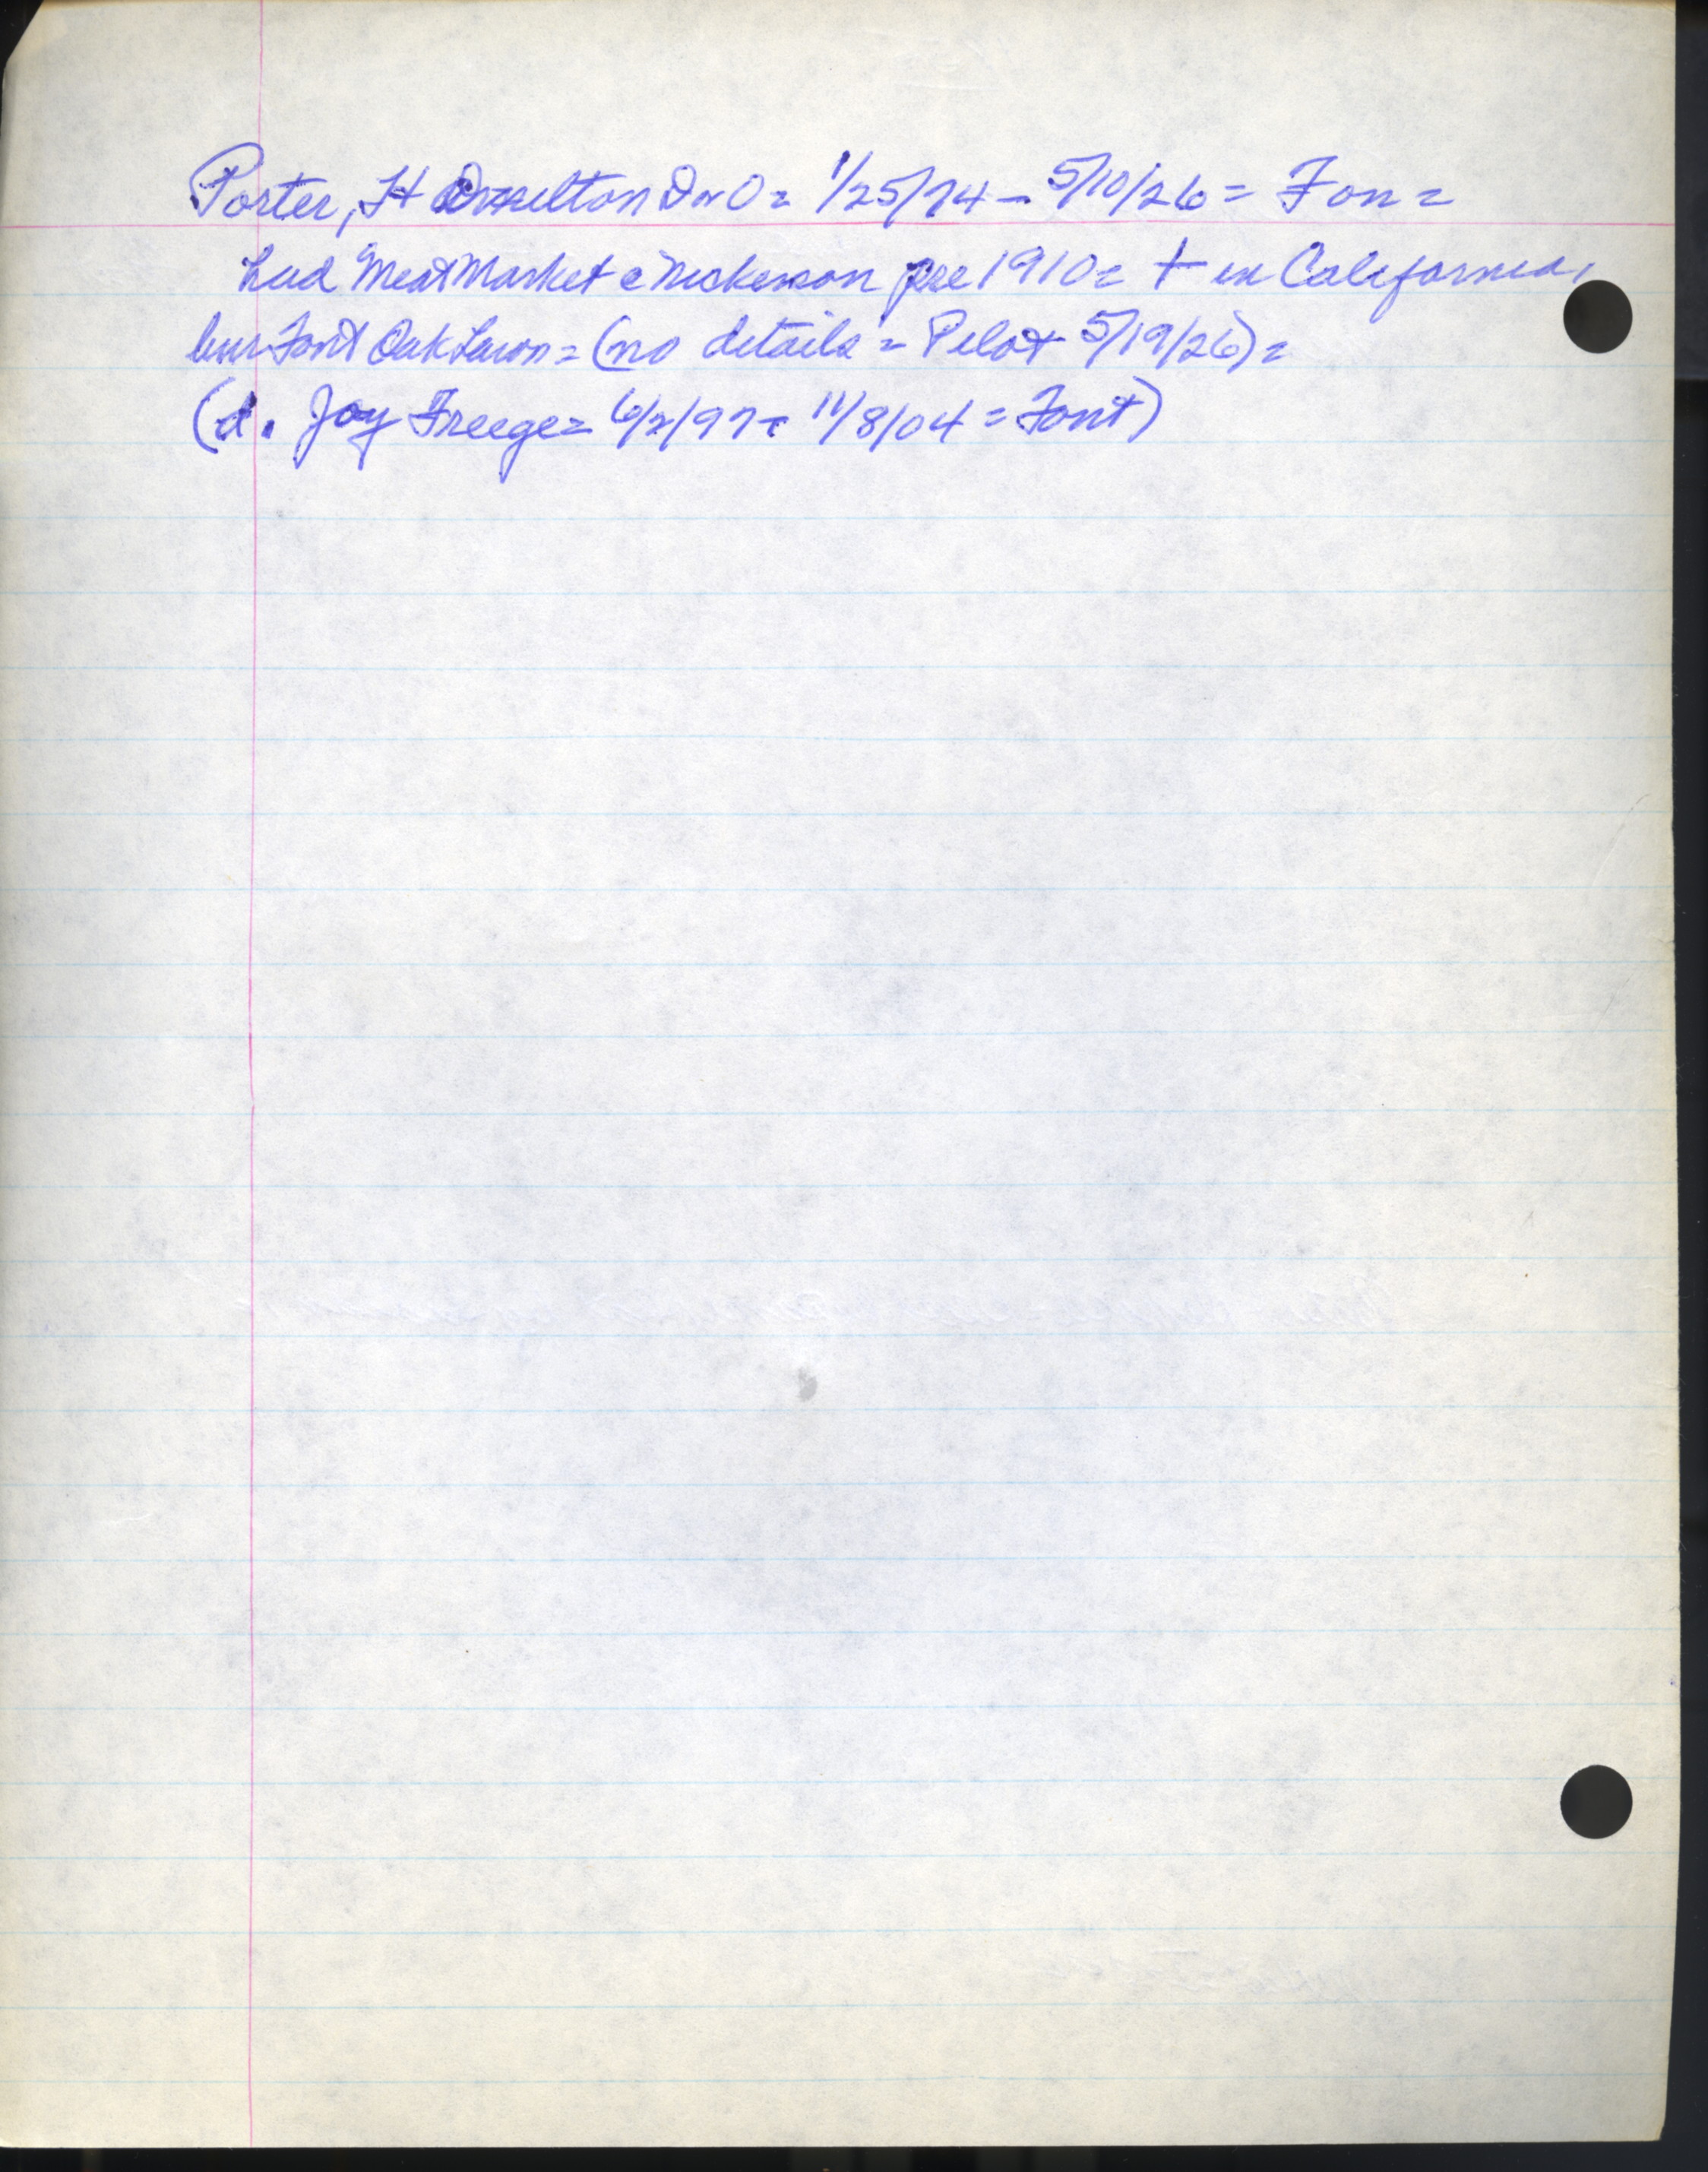 Porter, H Orselton D or O = 1/25/74 - 5/10/26 = Fon =
had Meat Market c Nickerson pre 1910 = † in California,
bur Font Oak Lawn = (no details = Pilot 5/19/26) =
(d. Joy Freege = 6/2/97 - 11/8/04 = Font)